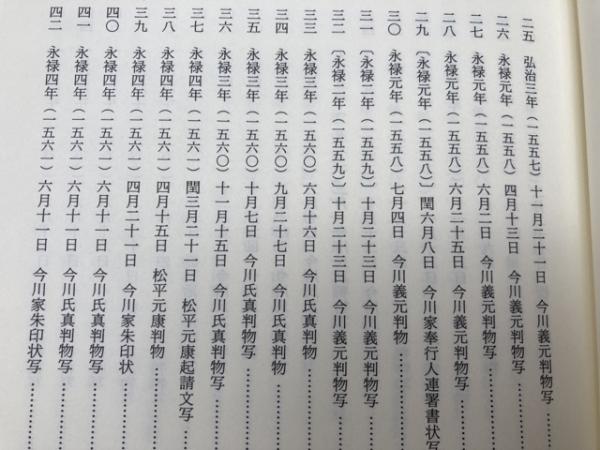 二五 弘治三年（一五五七）十一月二十一日 今川義元判物写…
二六 永禄元年（一五五八）四月十三日 今川義元判物写……
二七 永禄元年（一五五八）六月二日 今川義元判物写……
二八 永禄元年（一五五八）六月二十五日 今川義元判物写……
二九 〔永禄元年（一五五八）〕閏六月八日 今川家奉行人連署書状写
三〇 永禄元年（一五五八）七月四日 今川義元判物……
三一 〔永禄二年（一五五九）〕十月二十三日 今川義元判物写……
三二 〔永禄二年（一五五九）〕十月二十三日 今川義元判物写……
三三 永禄三年（一五六〇）六月十六日 今川氏真判物……
三四 永禄三年（一五六〇）九月二十七日 今川氏真判物……
三五 永禄三年（一五六〇）十月七日 今川氏真判物写……
三六 永禄三年（一五六〇）十一月十五日 今川氏真判物写……
三七 永禄四年（一五六一）閏三月二十一日 松平元康起請文写……
三八 永禄四年（一五六一）四月十五日 松平元康判物……
三九 永禄四年（一五六一）四月二十一日 今川家朱印状……
四〇 永禄四年（一五六一）六月十一日 今川氏真判物写……
四一 永禄四年（一五六一）六月十一日 今川氏真判物写……
四二 永禄四年（一五六一）六月十一日 今川家朱印状写……